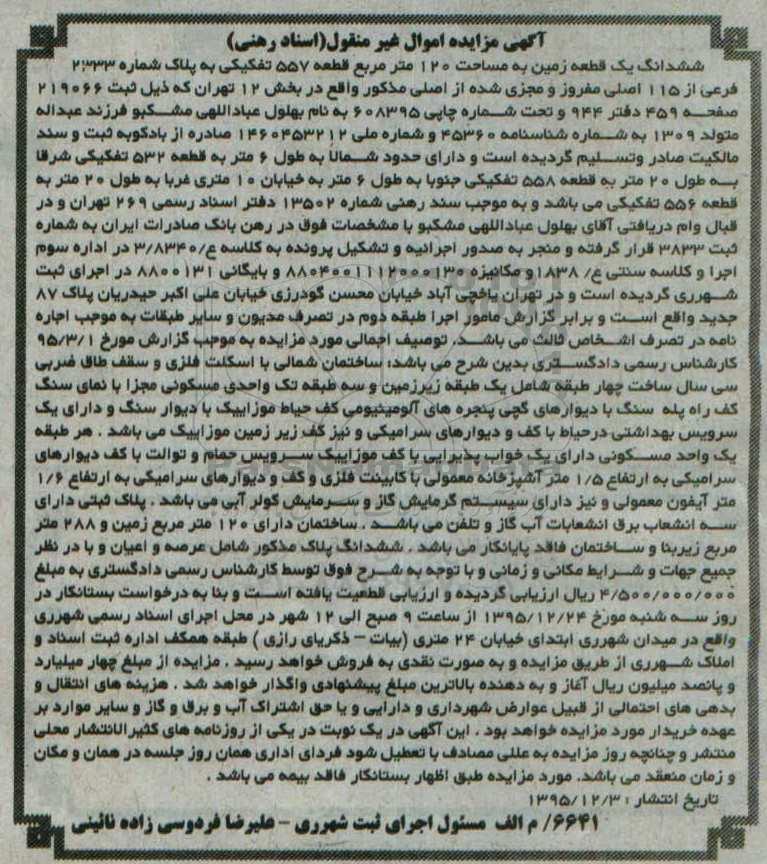 آگهی مزایده اموال غیر منقول(اسناد رهنی)
ششدانگ یک قطعه زمین به مساحت ۱۲۰ متر مربع قطعه ۵۵۷ تفکیکی به پلاک شماره ۲۳۳۳
فرعی از ۱۱۵ اصلی مفروز و مجزی شده از اصلی مذکور واقع در بخش ۱۲ تهران که ذیل ثبت ۲۱۹۰۶۶
صفحه ۴۵۹ دفتر ۹۴۴ و تحت شماره چاپی ۶۰۸۳۹۵ به نام بهلول عباداللهی مشکبو فرزند عبداله
متولد ۱۳۰۹ به شماره شناسنامه ۴۵۳۶۰ و شماره ملی ۱۴۶۰۴۵۳۲۱۲ صادره از بادکوبه ثبت و سند
مالکیت صادر وتسلیم گردیده است و دارای حدود شمالاً به طول ۶ متر به قطعه ۵۳۲ تفکیکی شرقا
به طول ۲۰ متر به قطعه ۵۵۸ تفکیکی جنوبا به طول ۶ متر به خیابان ۱۰ متری غربا به طول ۲۰ متر به
قطعه ۵۵۶ تفکیکی می باشد و به موجب سند رهنی شماره ۱۳۵۰۲ دفتر اسناد رسمی ۲۶۹ تهران و در
قبال وام دریافتی آقای بهلول عباداللهی مشکبو با مشخصات فوق در رهن بانک صادرات ایران به شماره
ثبت ۳۸۳۳ قرار گرفته و منجر به صدور اجرائیه و تشکیل پرونده به کلاسه ع/۳/۸۳۴۰ در اداره سوم
اجرا و کلاسه سنتی ع/ ۱۸۳۸و مکانیزه ۸۸۰۴۰۰۱۱۱۲۰۰۰۱۳۰ و بایگانی ۸۸۰۰۱۳۱ در اجرای ثبت
شهرری گردیده است و در تهران یاخچی آباد خیابان محسن گودرزی خیابان علی اکبر حیدریان پلاک ۸۷
جدید واقع است و برابر گزارش مامور اجرا طبقه دوم در تصرف مدیون و سایر طبقات به موجب اجاره
نامه در تصرف اشخاص ثالث می باشد. توصیف اجمالی مورد مزایده به موجب گزارش مورخ ۹۵/۳/۱
کارشناس رسمی دادگستری بدین شرح می باشد: ساختمان شمالی با اسکلت فلزی و سقف طاق ضربی
سی سال ساخت چهار طبقه شامل یک طبقه زیرزمین و سه طبقه تک واحدی مسکونی مجزا با نمای سنگ
کف راه پله سنگ با دیوارهای گچی پنجره های آلومینیومی کف حیاط موزاییک با دیوار سنگ و دارای یک
سرویس بهداشتی درحیاط با کف و دیوارهای سرامیکی و نیز کف زیر زمین موزاییک می باشد . هر طبقه
یک واحد مسکونی دارای یک خواب پذیرایی با کف موزاییک سرویس حمام و توالت با کف دیوارهای
سرامیکی به ارتفاع ۱/۵ متر آشپزخانه معمولی با کابینت فلزی و کف و دیوارهای سرامیکی به ارتفاع ۱/۶
متر آیفون معمولی و نیز دارای سیستم گرمایش گاز و سرمایش کولر آبی می باشد . پلاک ثبتی دارای
سه انشعاب برق انشعابات آب گاز و تلفن می باشد . ساختمان دارای ۱۲۰ متر مربع زمین و ۲۸۸ متر
مربع زیربنا و ساختمان فاقد پایانکار می باشد . ششدانگ پلاک مذکور شامل عرصه و اعیان و با در نظر
جمیع جهات و شرایط مکانی و زمانی و با توجه به شرح فوق توسط کارشناس رسمی دادگستری به مبلغ
۴/۵۰۰/۰۰۰/۰۰۰ ریال ارزیابی گردیده و ارزیابی قطعیت یافته است و بنا به درخواست بستانکار در
روز سه شنبه مورخ ۱۳۹۵/۱۲/۲۴ از ساعت ۹ صبح الی ۱۲ شهر در محل اجرای اسناد رسمی شهرری
واقع در میدان شهرری ابتدای خیابان ۲۴ متری (بیات – ذکریای رازی ) طبقه همکف اداره ثبت اسناد و
املاک شهرری از طریق مزایده و به صورت نقدی به فروش خواهد رسید . مزایده از مبلغ چهار میلیارد
و پانصد میلیون ریال آغاز و به دهنده بالاترین مبلغ پیشنهادی واگذار خواهد شد . هزینه های انتقال و
بدهی های احتمالی از قبیل عوارض شهرداری و دارایی و یا حق اشتراک آب و برق و گاز و سایر موارد بر
عهده خریدار مورد مزایده خواهد بود . این آگهی در یک نوبت در یکی از روزنامه های کثیرالانتشار محلی
منتشر و چنانچه روز مزایده به عللی مصادف با تعطیل شود فردای اداری همان روز جلسه در همان و مکان
و زمان منعقد می باشد. مورد مزایده طبق اظهار بستانکار فاقد بیمه می باشد .
تاریخ انتشار : ۱۳۹۵/۱۲/۳
۶۶۴۱/ م الف مسئول اجرای ثبت شهرری – علیرضا فردوسی زاده نائینی